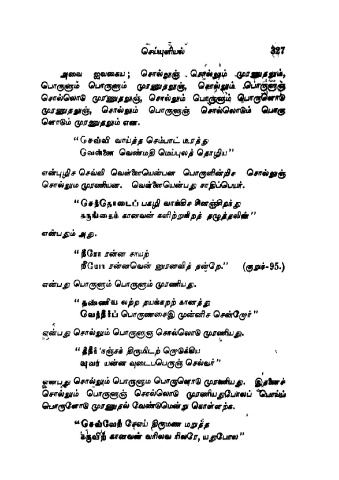 செய்யுளியல் 327
அவை ஐவகைய; சொல்லுஞ் சொல்லும் முரணுதலும்,
பொருளும் பொருளும் முரணுதலுஞ், சொல்லும் பொருளுஞ்
சொல்லொடு முரணுதலுஞ், சொல்லும் பொருளும் பொருளொடு
முரணுதலுஞ், சொல்லும் பொருளுஞ் சொல்லொடும் பொரு
ளொடும் முரணுதலும் என.
"செவ்வி வாய்த்த செம்பாட் டீரத்து
வெள்ளை வெண்மதி மெய்புலத் தொழிய"
என்புழிச் செவ்வி வெள்ளையென்பன பொருளின்றிச் சொல்லுஞ்
சொல்லும் முரணியன. வெள்ளையென்பது சாதிப்பெயர்.
"செந்தொடைப் பகழி வாங்கிச் சினஞ்சிறந்து
கருங்கைக் கானவன் களிற்றுநிறத் தழுத்தலின்"
என்பதும் அது.
"நீரோ ரன்ன சாயற்
றீயோ ரன்னவென் னுரனவித் தன்றே." (குறுந்-95.)
என்பது பொருளும் பொருளும் முரணியது.
"தண்ணிய லற்ற தயக்கறற் கானத்து
வெந்நீர்ப் பொருணசைஇ முன்னிச் சென்றோர்"
என்பது சொல்லும் பொருளுஞ் சொல்லொடு முரணியது.
"தீநீர் நஞ்சந் திருமிடற் றொடுக்கிய
வுடைப்பெருஞ் செல்வர்"
என்பது சொல்லும் பொருளும் பொருளொடு முரணியது. இதனைச்
சொல்லும் பொருளுஞ் சொல்லொடு முரணியதுபோலப்
பொருளோடு முரணுதல் வேண்டுமென்று கொள்ளற்க.
"செவ்வேற் சேஎய் திருமண மறுத்த
கானவன் வரிலவ ரிலரே, யதுபோல"